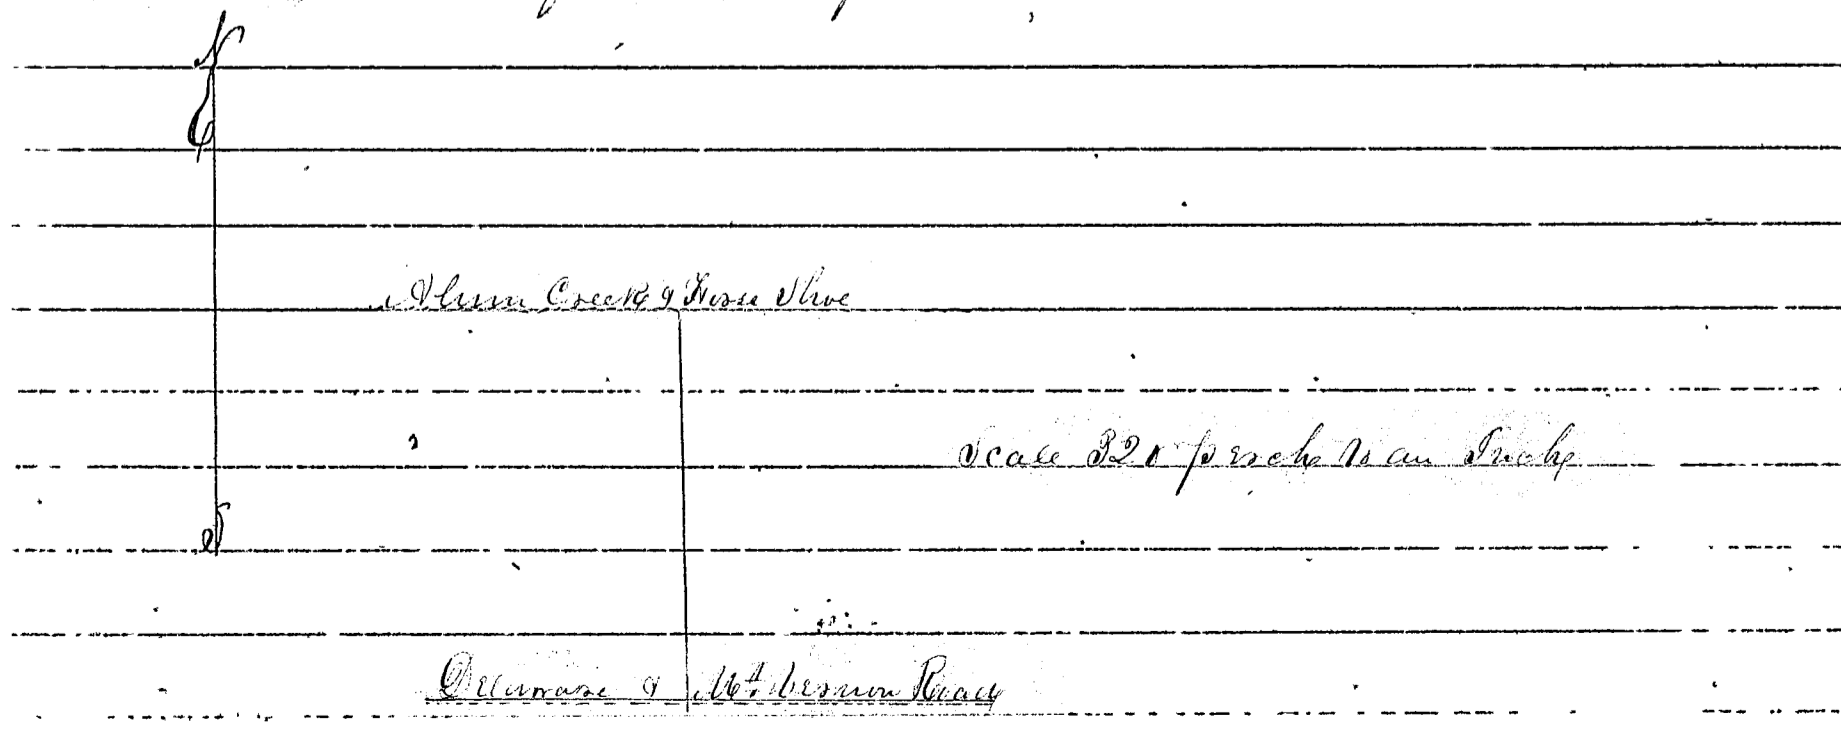 N
Alum Creek & Horse Shoe
Scale 320 perch to an Inch
S
Delaware & Mt Vernon Road